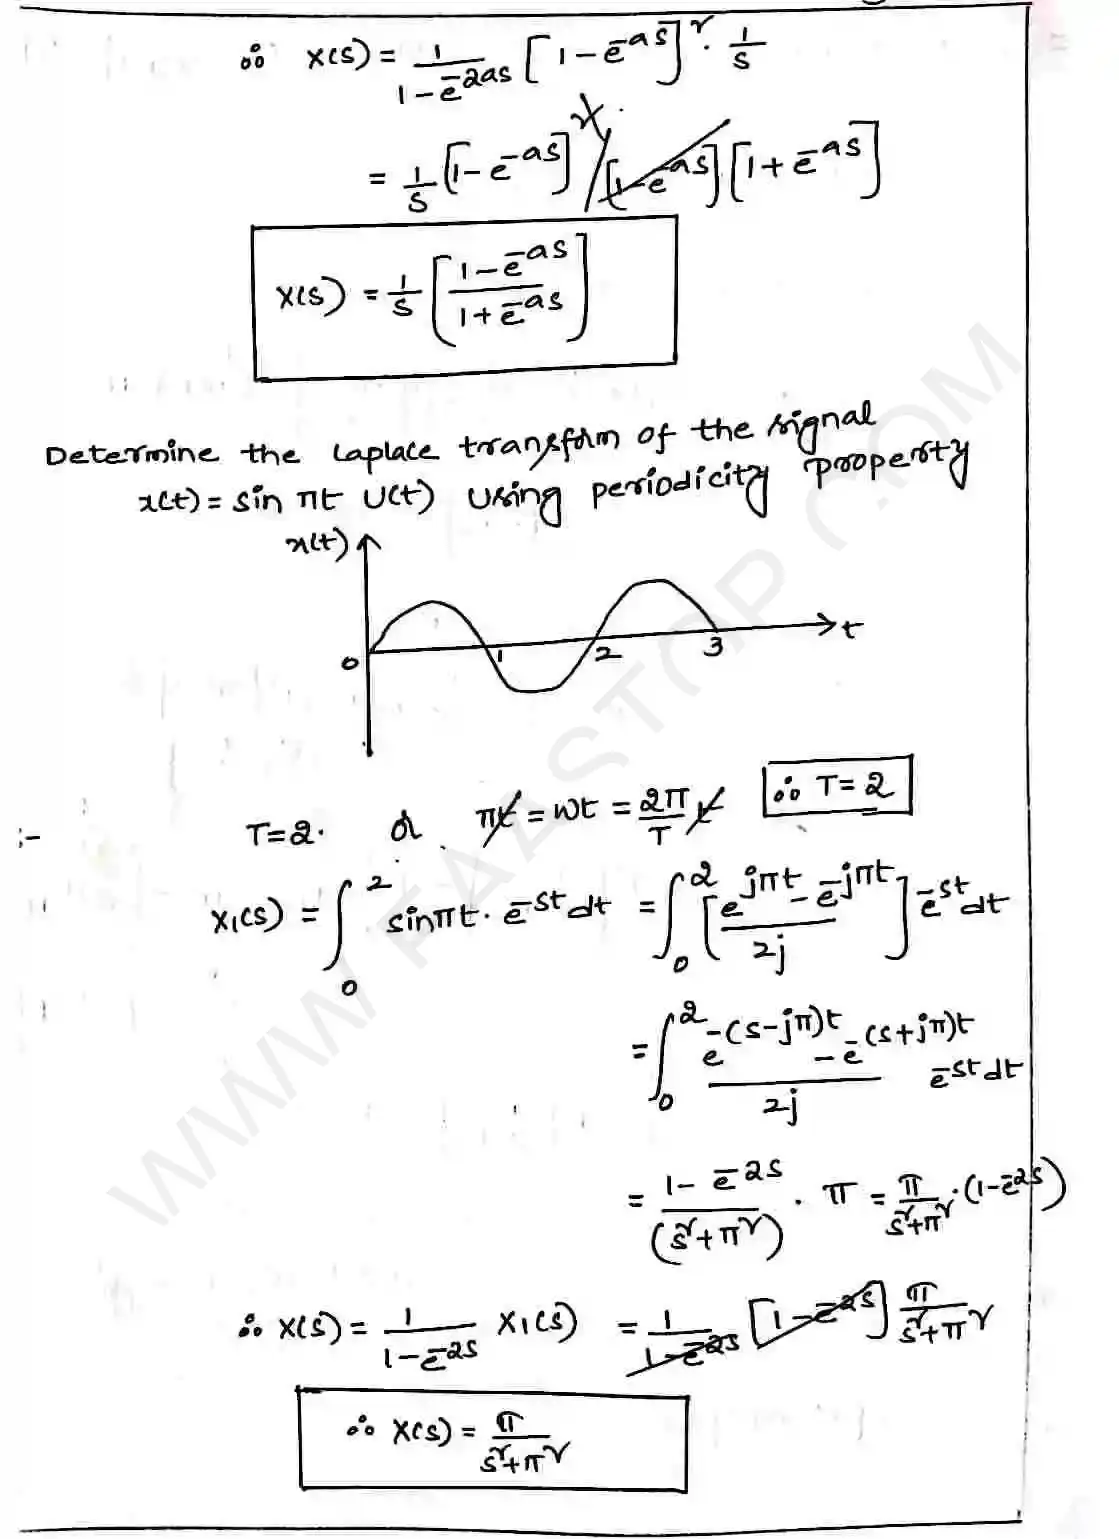 ∴ X(s) = 1/(1-e^-2as) [1-e^-as]^2 . 1/s
= 1/s [1-e^-as]^2 / [1-e^-as] [1+e^-as]
X(s) = 1/s [(1-e^-as)/(1+e^-as)]
Determine the Laplace transform of the signal
x(t) = sin πt U(t) using periodicity property
x(t)
0 1 2 3 t
:- T=2. or πt = wt = 2π/T t ∴ T=2
X₁(s) = ∫₀² sinπt . e^-st dt = ∫₀² [(e^jπt - e^-jπt)/2j] e^-st dt
= ∫₀² (e^-(s-jπ)t - e^-(s+jπ)t)/2j e^-st dt
= (1-e^-2s)/(s²+π²) . π = π/(s²+π²) . (1-e^-2s)
∴ X(s) = 1/(1-e^-2s) X₁(s) = 1/(1-e^-2s) [1-e^-2s] π/(s²+π²)
∴ X(s) = π/(s²+π²)
WWW.FAASTOP.COM